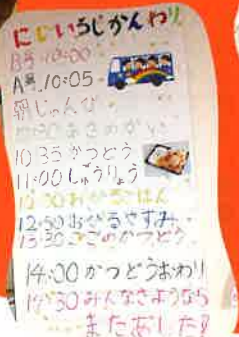 にじいろじかんわり
B号 10:00
A号 10:05
朝じゅんび
あさのかい
10:35 かつどう
11:00 しゅうりょう
12:00 おひるごはん
12:30 おひるやすみ
13:30 ごごのかつどう
14:00 かつどうおわり
14:30 みんなさようなら
またあした